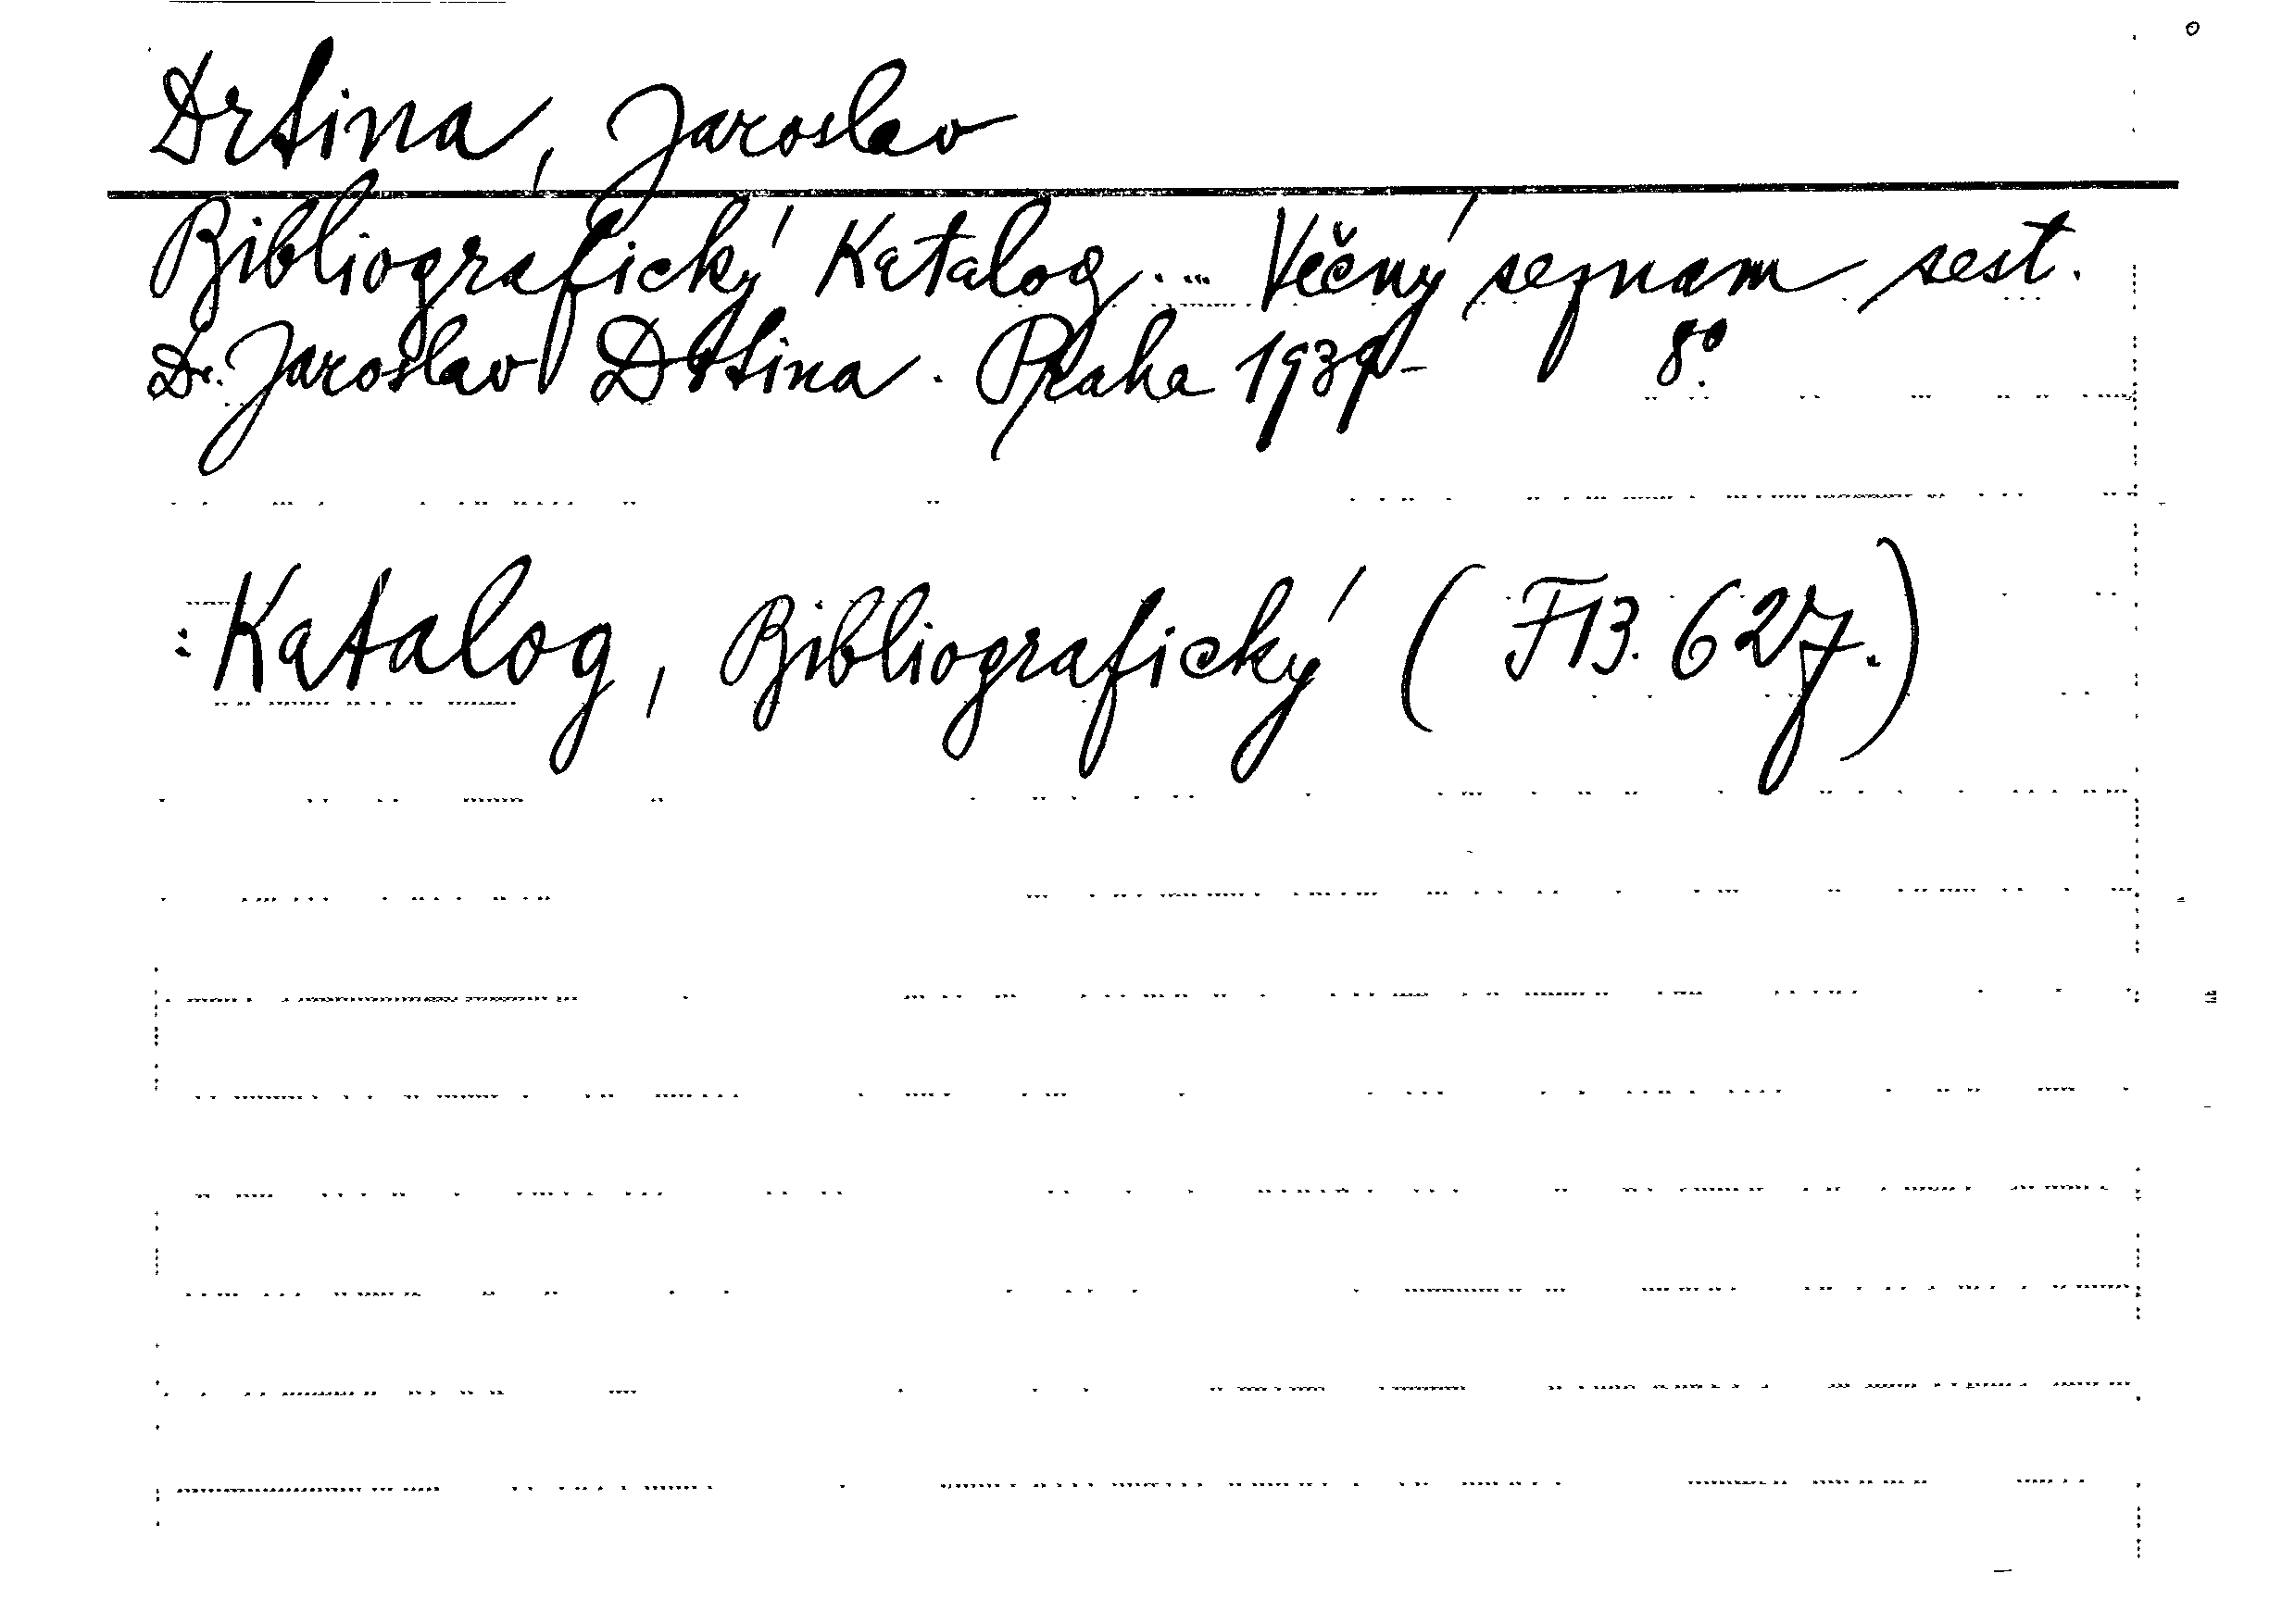 Drtina, Jaroslav
Bibliografický Katalog... Věčný seznam sest.
Dr. Jaroslav Drtina. Praha 1939- 8°.
: Katalog, Bibliografický (F13.627.)